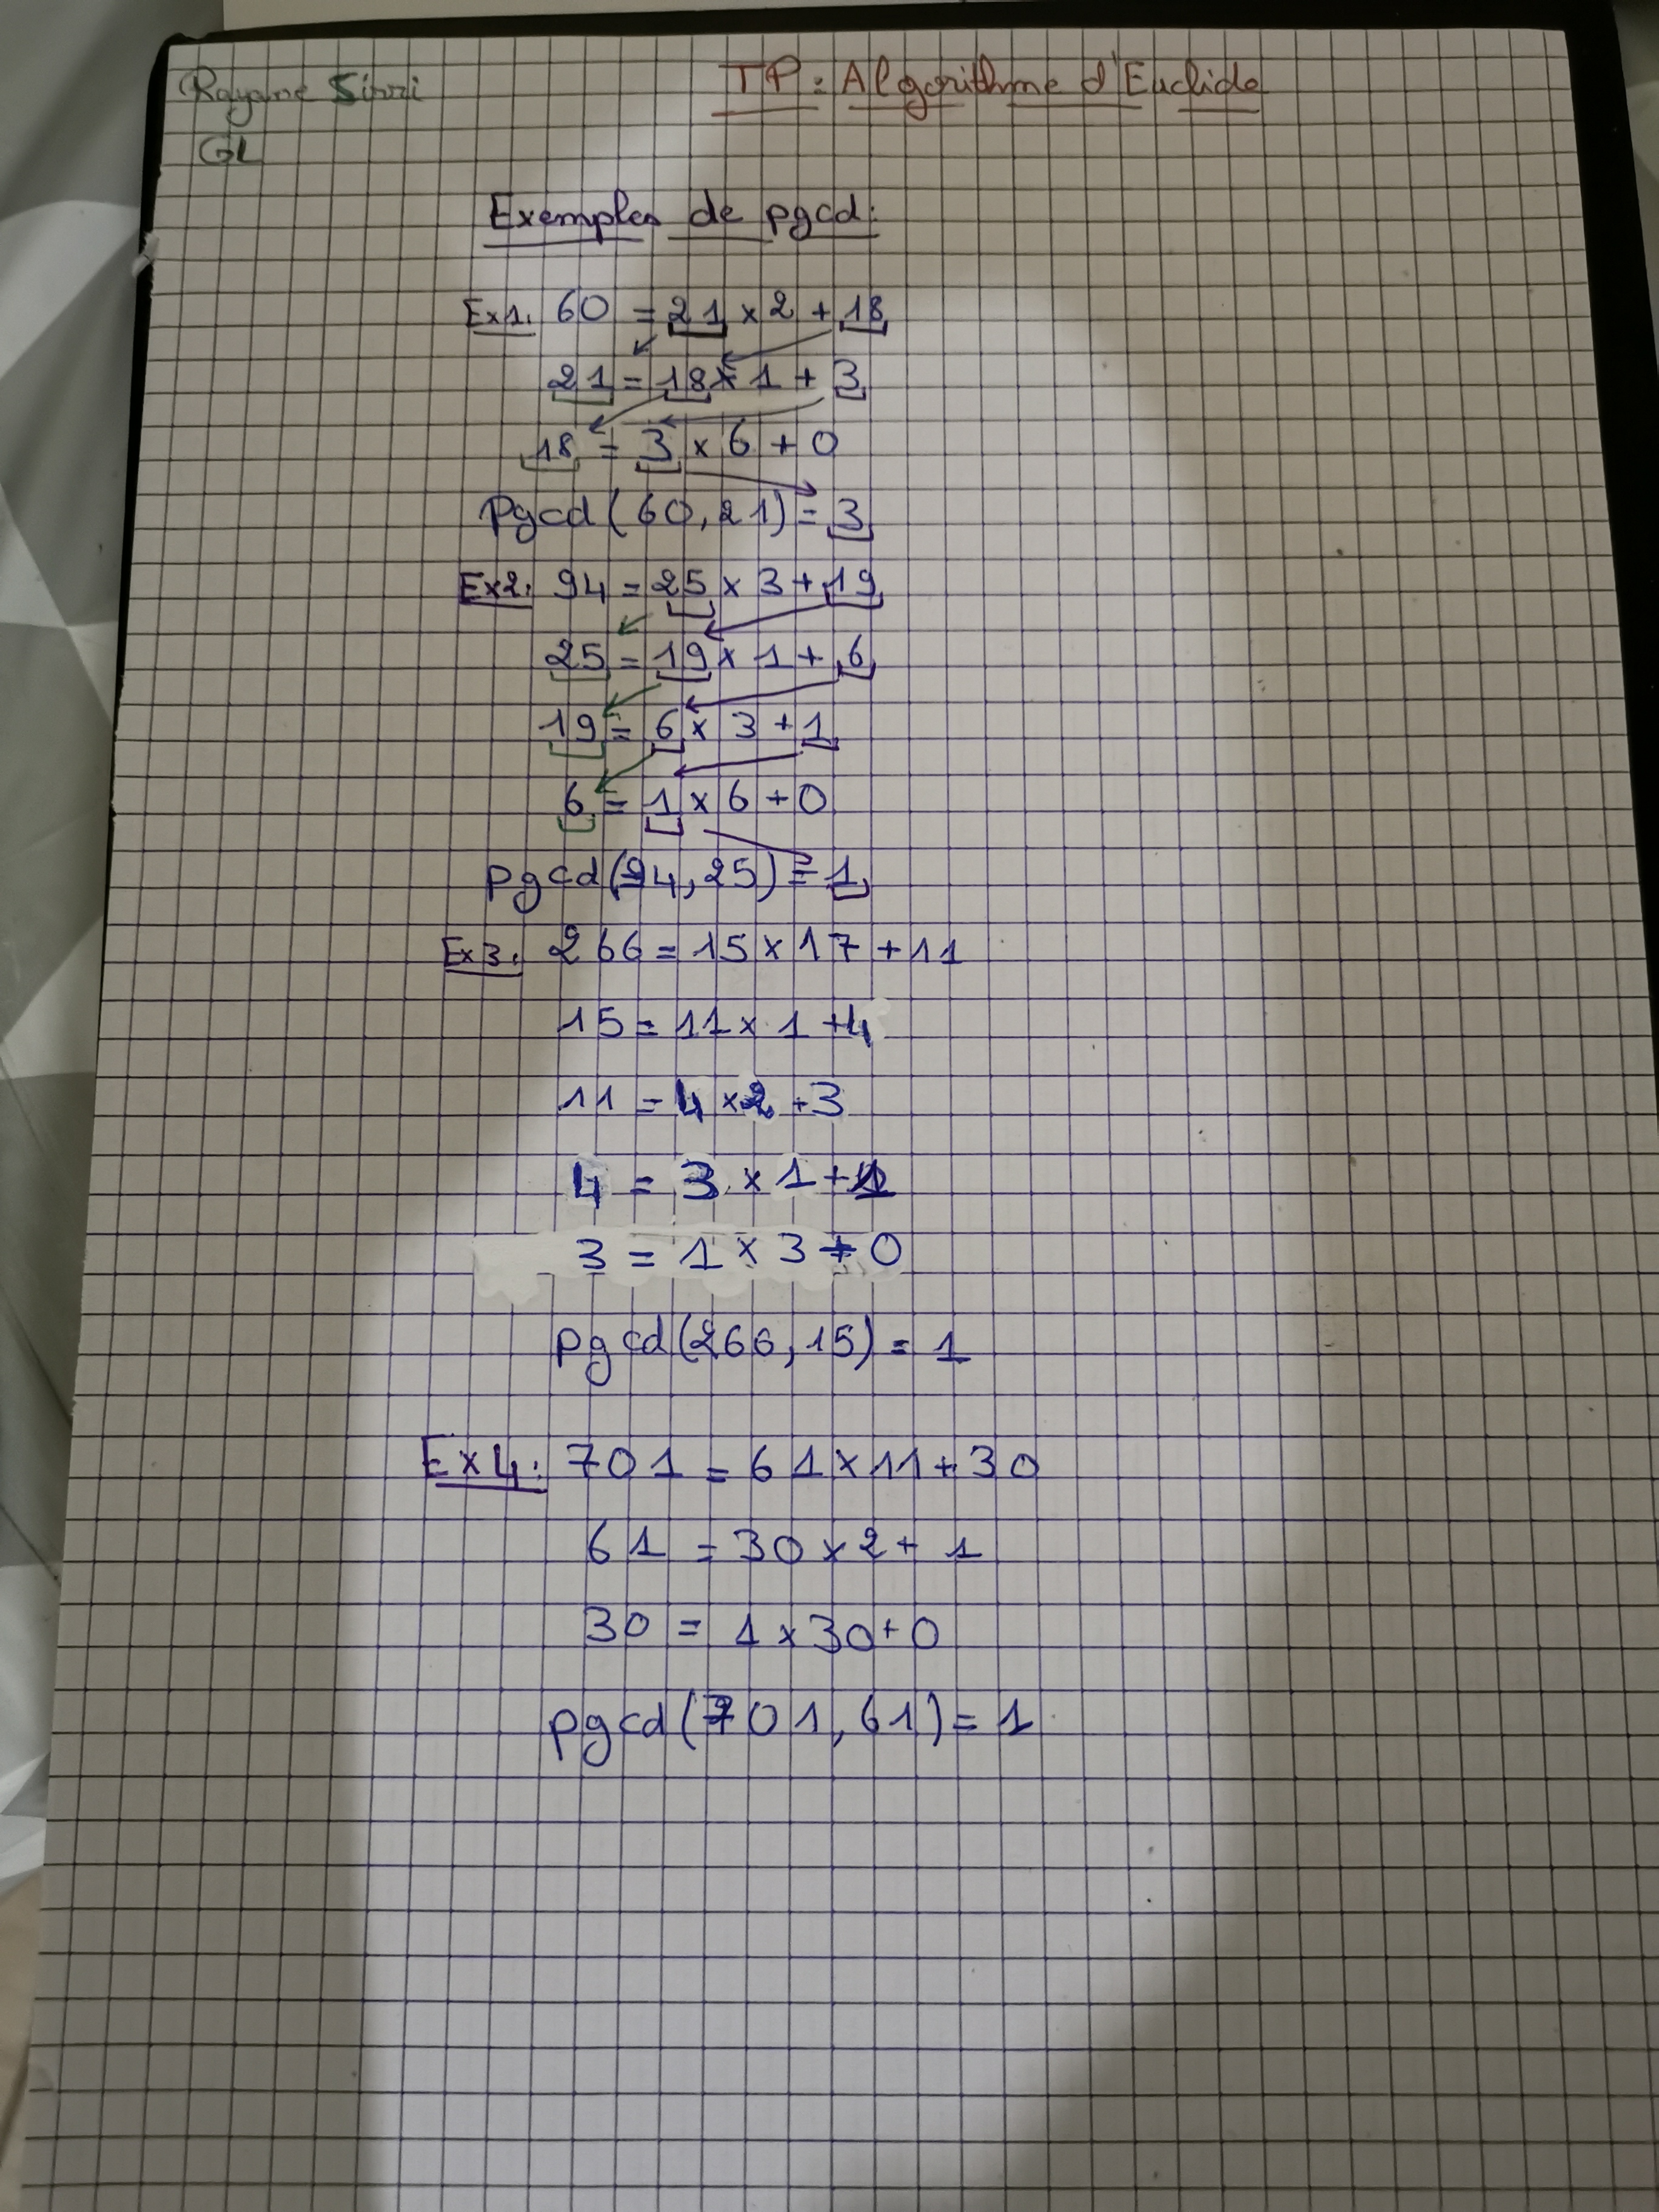 Rayane TP: Algorithme d'Euclide
Exemples de pgcd:
Ex1: 60 = 21 x 2 + 18
21 = 18 x 1 + 3
18 = 3 x 6 + 0
Pgcd(60,21) = 3
Ex2: 94 = 25 x 3 + 19
25 = 19 x 1 + 6
19 = 6 x 3 + 1
6 = 1 x 6 + 0
pgcd(94,25) = 1
Ex3: 266 = 15 x 17 + 11
15 = 11 x 1 + 4
11 = 4 x 2 + 3
4 = 3 x 1 + 1
3 = 1 x 3 + 0
pgcd(266,15) = 1
Ex4: 701 = 61 x 11 + 30
61 = 30 x 2 + 1
30 = 1 x 30 + 0
pgcd(701,61) = 1